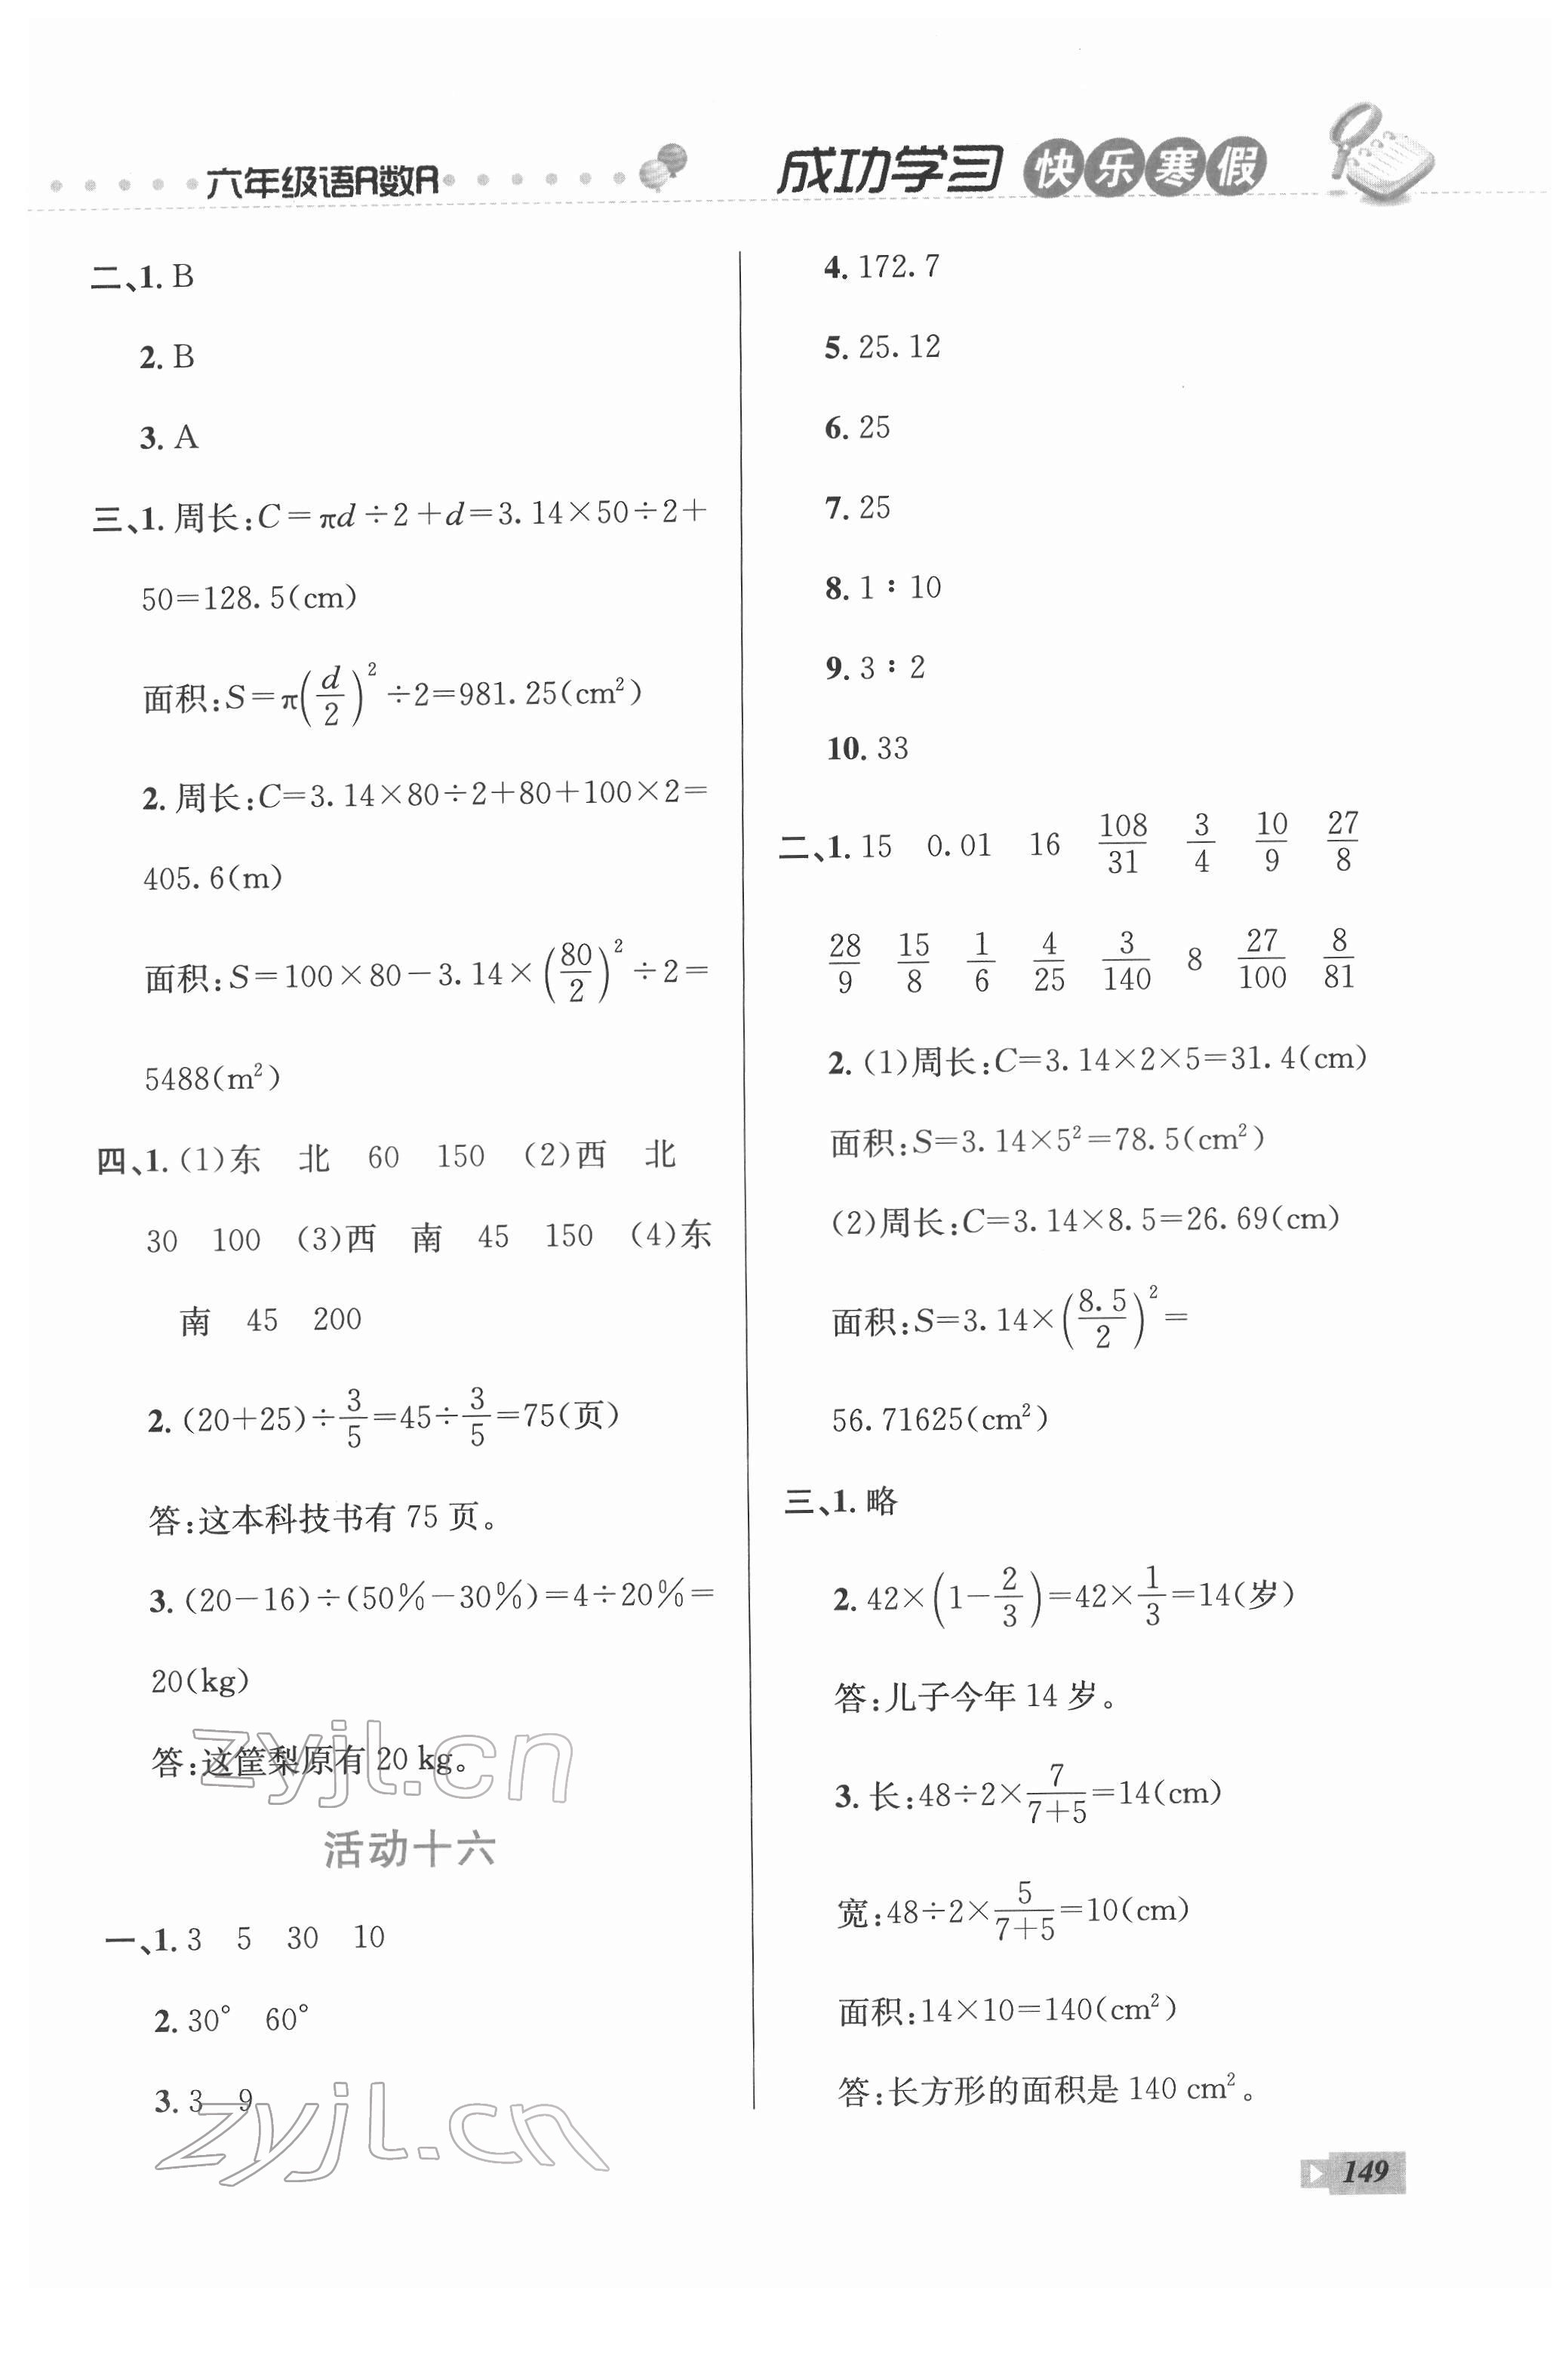 六年级语R数R
成功学习 快乐寒假
二、1. B
2. B
3. A
三、1. 周长:C=πd÷2+d=3.14×50÷2+
50=128.5(cm)
面积:S=π(d/2)²÷2=981.25(cm²)
2. 周长:C=3.14×80÷2+80+100×2=
405.6(m)
面积:S=100×80-3.14×(80/2)²÷2=
5488(m²)
四、1. (1)东 北 60 150 (2)西 北
30 100 (3)西 南 45 150 (4)东
南 45 200
2. (20+25)÷3/5=45÷3/5=75(页)
答:这本科技书有 75 页。
3. (20-16)÷(50%-30%)=4÷20%=
20(kg)
答:这筐梨原有 20 kg。
zyjl.cn
活动十六
一、1. 3 5 30 10
2. 30° 60°
3. 3 9
zyjl.cn
4. 172.7
5. 25.12
6. 25
7. 25
8. 1∶10
9. 3∶2
10. 33
二、1. 15 0.01 16 108/31 3/4 10/9 27/8
28/9 15/8 1/6 4/25 3/140 8 27/100 8/81
2. (1)周长:C=3.14×2×5=31.4(cm)
面积:S=3.14×5²=78.5(cm²)
(2)周长:C=3.14×8.5=26.69(cm)
面积:S=3.14×(8.5/2)²=
56.71625(cm²)
三、1. 略
2. 42×(1-2/3)=42×1/3=14(岁)
答:儿子今年 14 岁。
3. 长:48÷2×7/(7+5)=14(cm)
宽:48÷2×5/(7+5)=10(cm)
面积:14×10=140(cm²)
答:长方形的面积是 140 cm²。
149